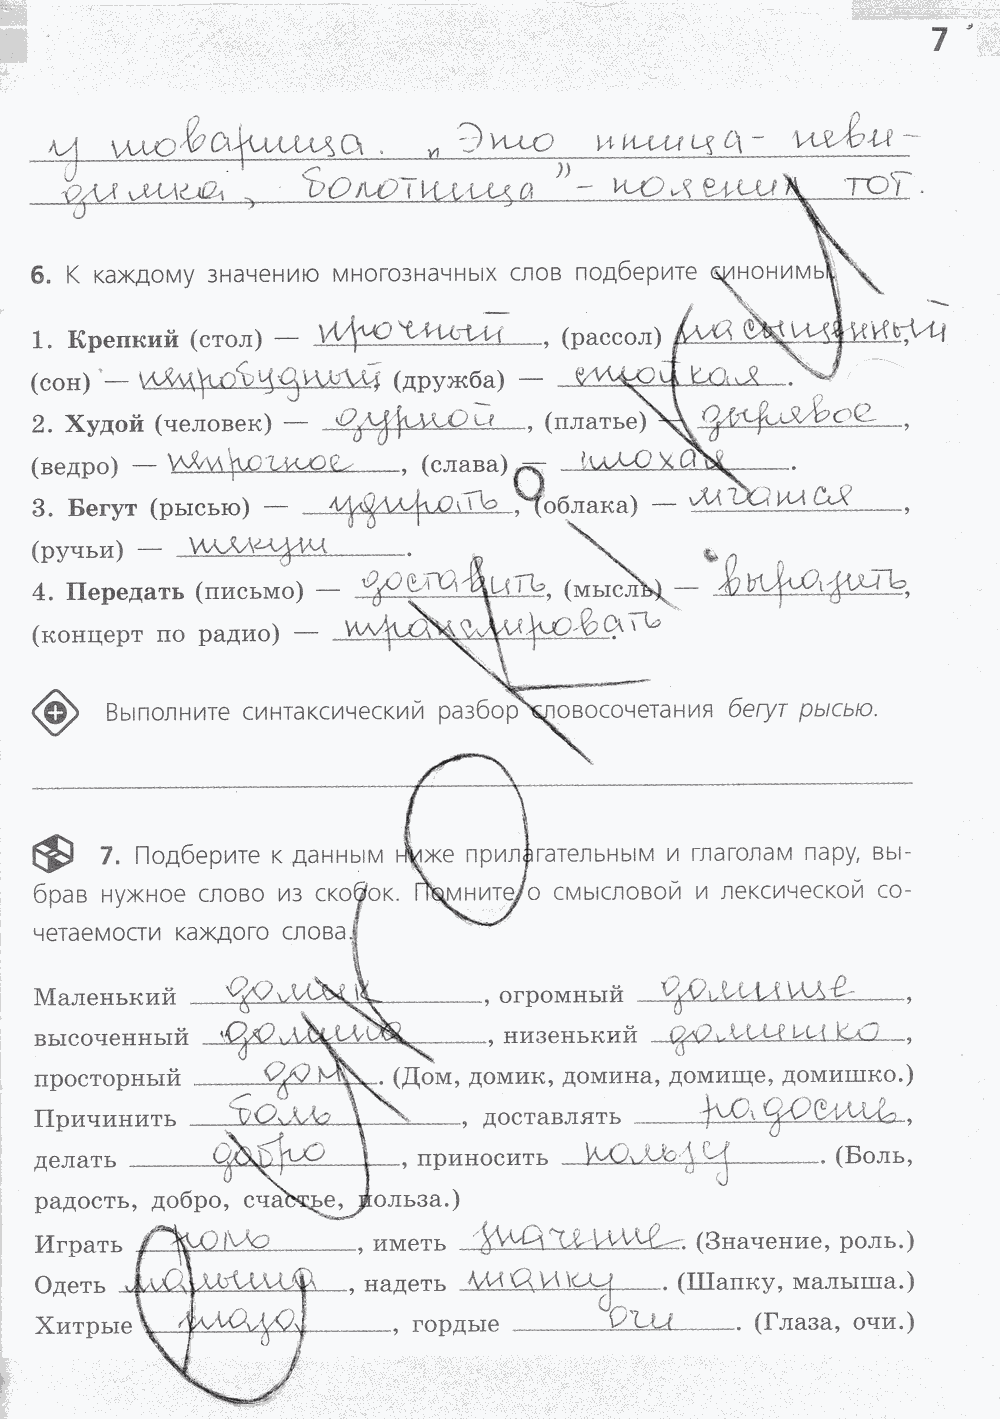 7
у товарища. „Это птица- неви-
димка, болотница"- пояснил тот.
6. К каждому значению многозначных слов подберите синонимы.
1. Крепкий (стол) — прочный, (рассол) насыщенный,
(сон) — непробудный, (дружба) — стойкая.
2. Худой (человек) — дурной, (платье) — дырявое,
(ведро) — непрочное, (слава) — плохая.
3. Бегут (рысью) — удирать, (облака) — мчатся,
(ручьи) — текут.
4. Передать (письмо) — доставить, (мысль) — выразить,
(концерт по радио) — транслировать.
Выполните синтаксический разбор словосочетания бегут рысью.
7. Подберите к данным ниже прилагательным и глаголам пару, вы-
брав нужное слово из скобок. Помните о смысловой и лексической со-
четаемости каждого слова.
Маленький домик, огромный домище,
высоченный домина, низенький домишко,
просторный дом. (Дом, домик, домина, домище, домишко.)
Причинить боль, доставлять радость,
делать добро, приносить пользу. (Боль,
радость, добро, счастье, польза.)
Играть роль, иметь значение. (Значение, роль.)
Одеть малыша, надеть шапку. (Шапку, малыша.)
Хитрые глаза, гордые очи. (Глаза, очи.)